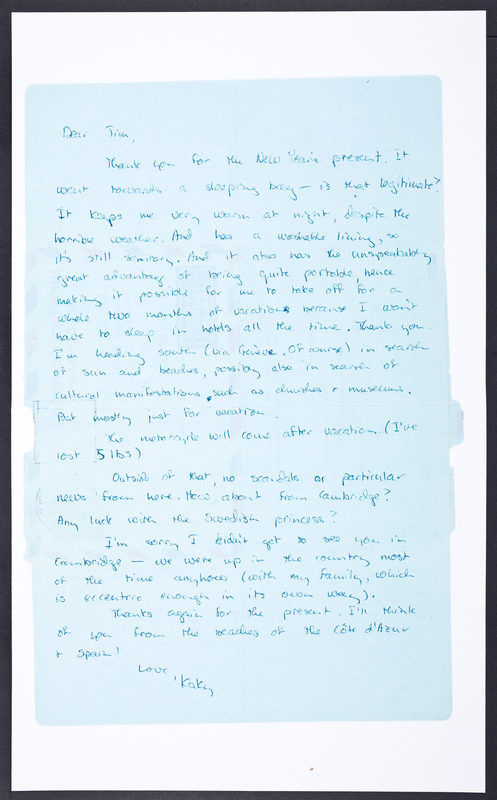 Dear Tim,
Thank you for the New Year's present. It
went towards a sleeping bag — is that legitimate?
It keeps me very warm at night, despite the
horrible weather. And has a washable lining, so
it's still sanitary. And it also has the unspeakably
great advantage of being quite portable, hence
making it possible for me to take off for a
whole two months of vacation because I won't
have to sleep in hotels all the time. Thank you.
I'm heading south (via Genève, of course) in search
of sun and beaches, possibly also in search of
cultural manifestations, such as churches + museums.
But mostly just for vacation.
The motorcycle will come after vacation. (I've
lost 5 lbs)
Outside of that, no scandals or particular
news from here. How about from Cambridge?
Any luck with the Swedish princess?
I'm sorry I didn't get to see you in
Cambridge — we were up in the country most
of the time anyhow (with my family, which
is eccentric enough in its own way).
Thanks again for the present. I'll think
of you from the beaches of the Côte d'Azur
+ Spain!
Love,
Kaky